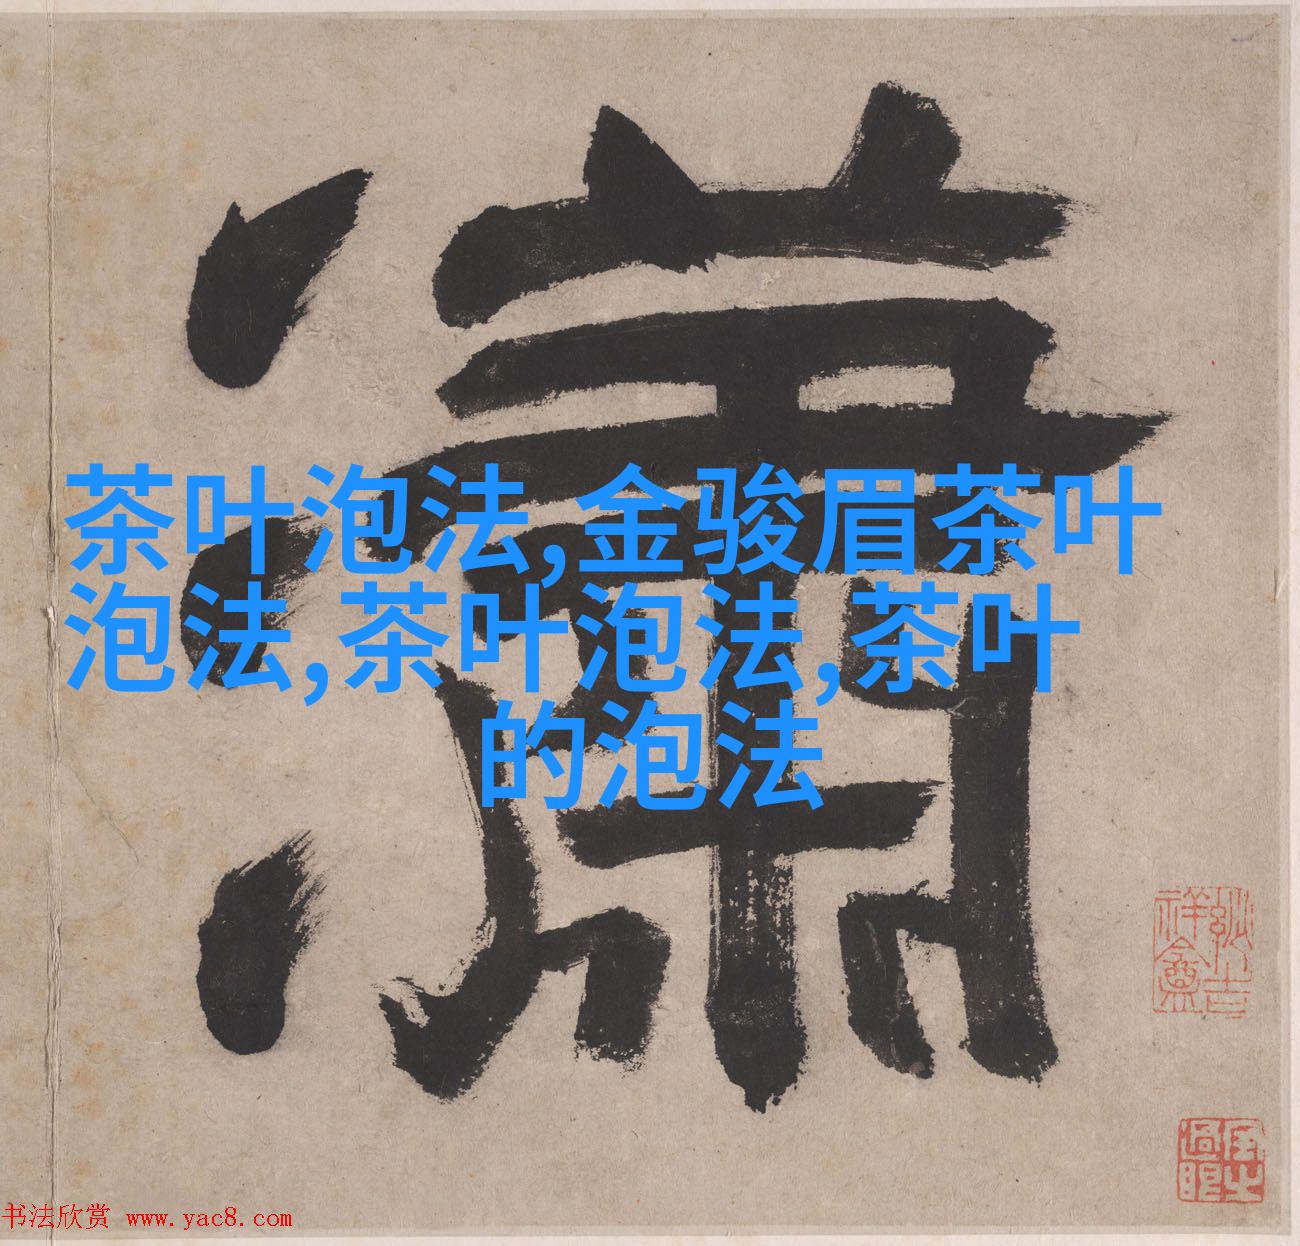 瀟
茶叶泡法,金骏眉茶叶
泡法,茶叶泡法,茶叶
的泡法
书法欣赏 www.yac8.com